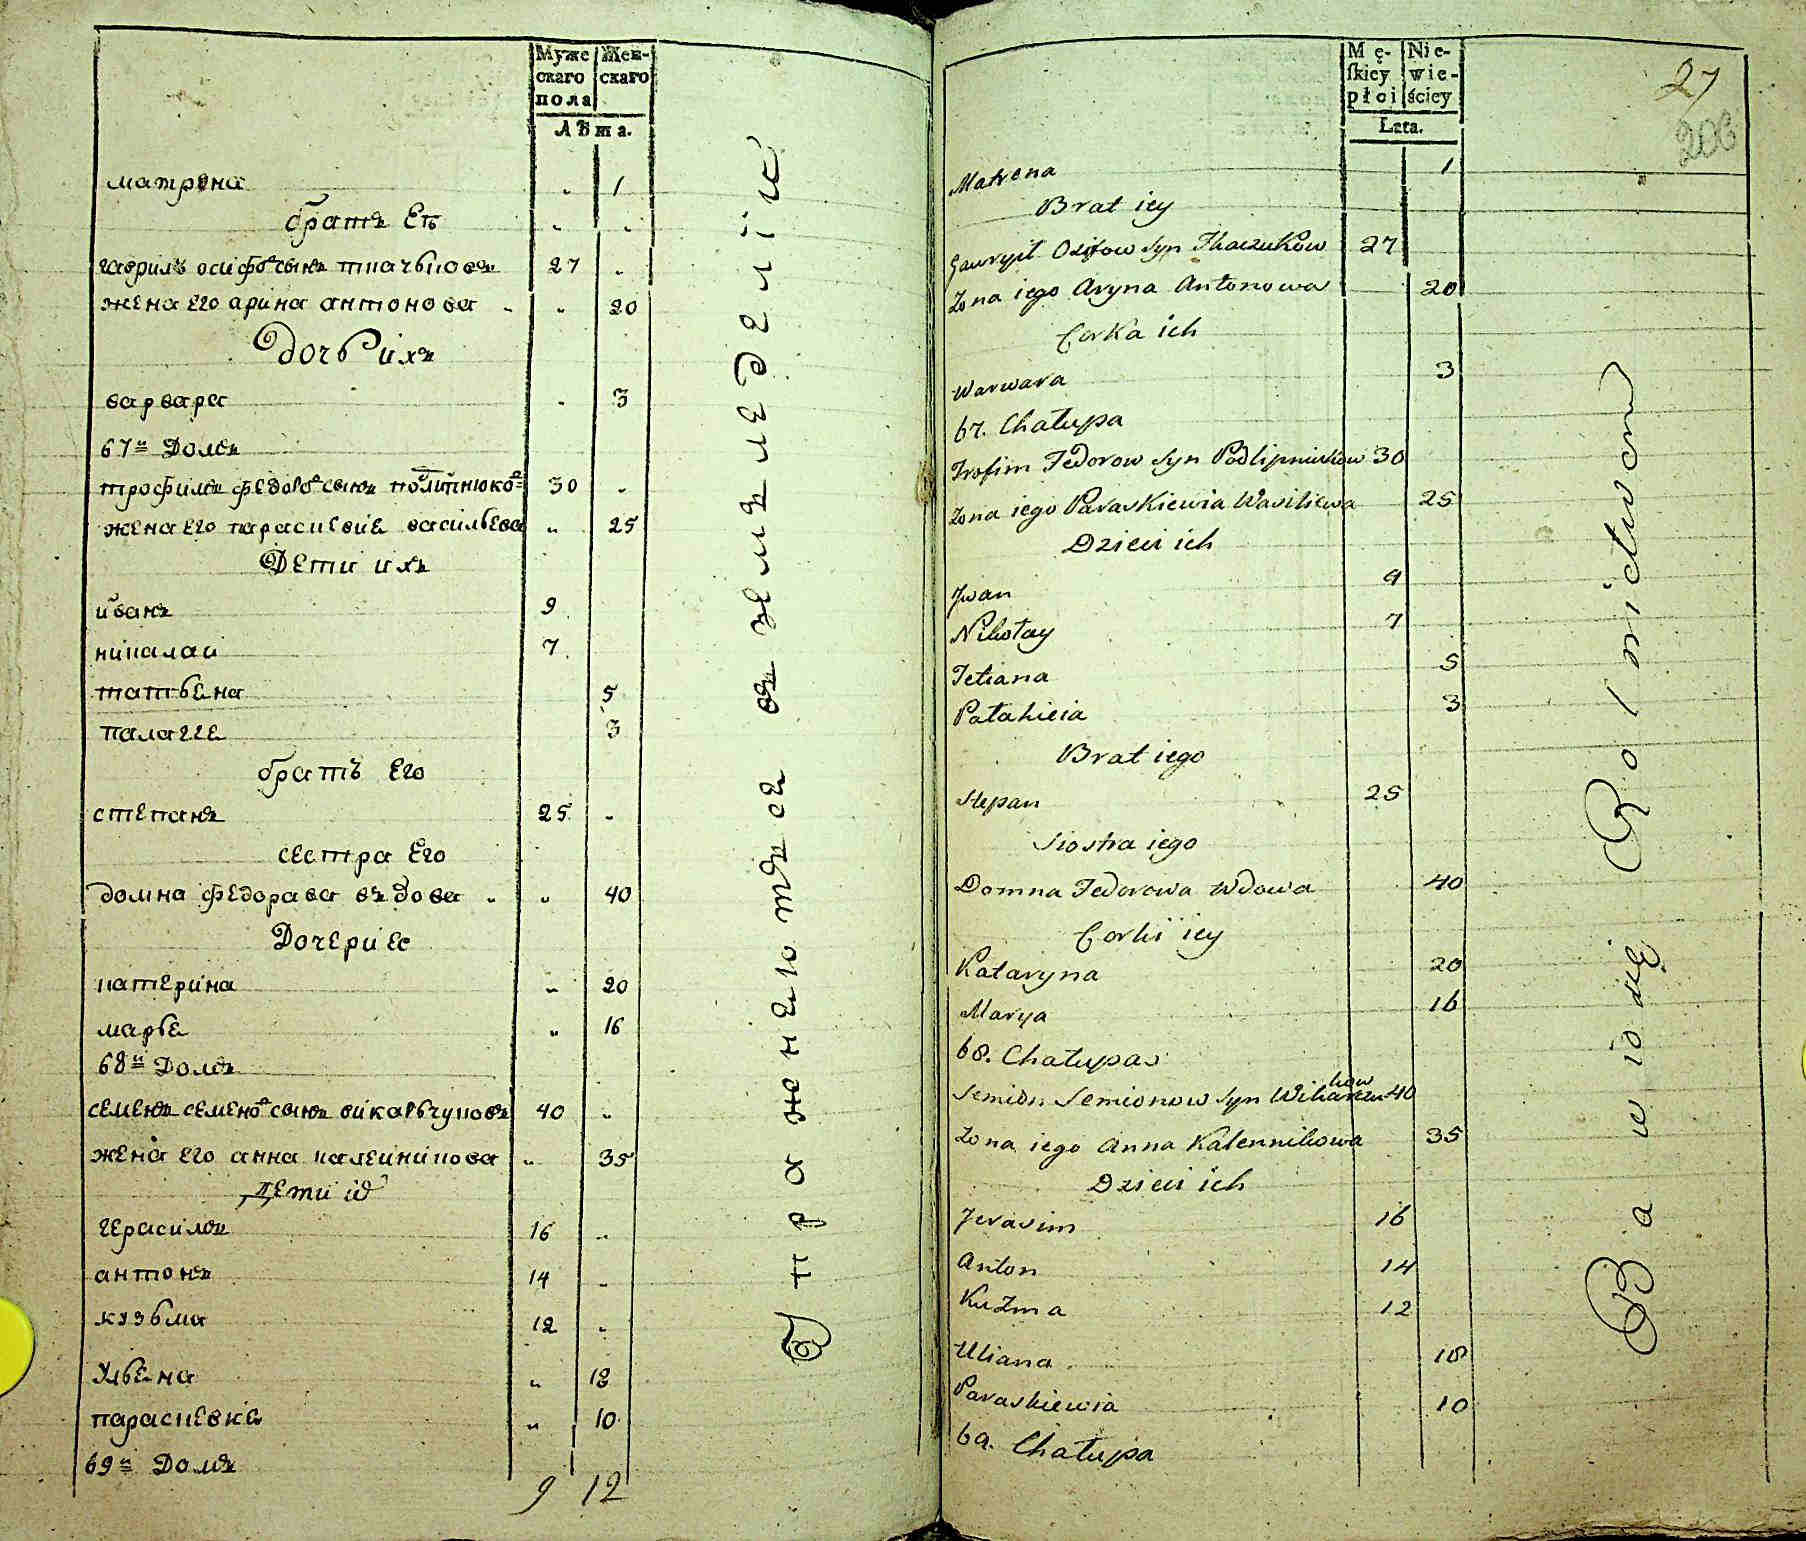 Муже Жен-
скаго скаго
пола
Лѣта.
матрена „ 1
братъ Еѣ „ „
гаврилъ осифовъ сынъ ткачьковъ 27 „
жена его арина антонова „ 20
Дочь ихъ
варвара „ 3
67й Домъ
трофимъ федоровъ сынъ 30 „
жена его параскевие васильева „ 25
Дети ихъ
иванъ 9
николаи 7
татьена 5
палагее 3
братъ Его
степанъ 25 „
сестра Его
домна федорава въдова „ 40
Дочери ее
катерина „ 20
марье „ 16
68й Домъ
семенъ семеновъ сынъ викарьчуковъ 40 „
жена его анна калеиникова „ 35
Дети их
герасимъ 16 „
антонъ 14 „
кузьма 12 „
Ульена „ 18
параскевие „ 10
69й Домъ
9 12
Упражнеютса въ земледелiи
Mę- Nie-
skiey wie-
płci ściey
Lata.
27
206
Matrena 1
Brat iey
Gawryił Osifow Syn Tkaczukow 27
Żona iego Aryna Antonowa 20
Corka ich
Warwara 3
67. Chałupa
Trofim Fedorow Syn Podlipniukow 30
Żona iego Paraskiewia Wasiliewa 25
Dzieci ich
Jwan 9
Nikołay 7
Tetiana 5
Pałahieia 3
Brat iego
Stepan 25
Siostra iego
Domna Fedorowa Wdowa 40
Corki iey
Kataryna 20
Marya 16
68. Chałupas
Semion Semionow Syn Wikarczukow 40
Żona iego Anna Kalennikowa 35
Dzieci ich
Jerasim 16
Anton 14
Kuzma 12
Uliana 18
Paraskiewia 10
69. Chałupa
Bawio się Rolnictwem